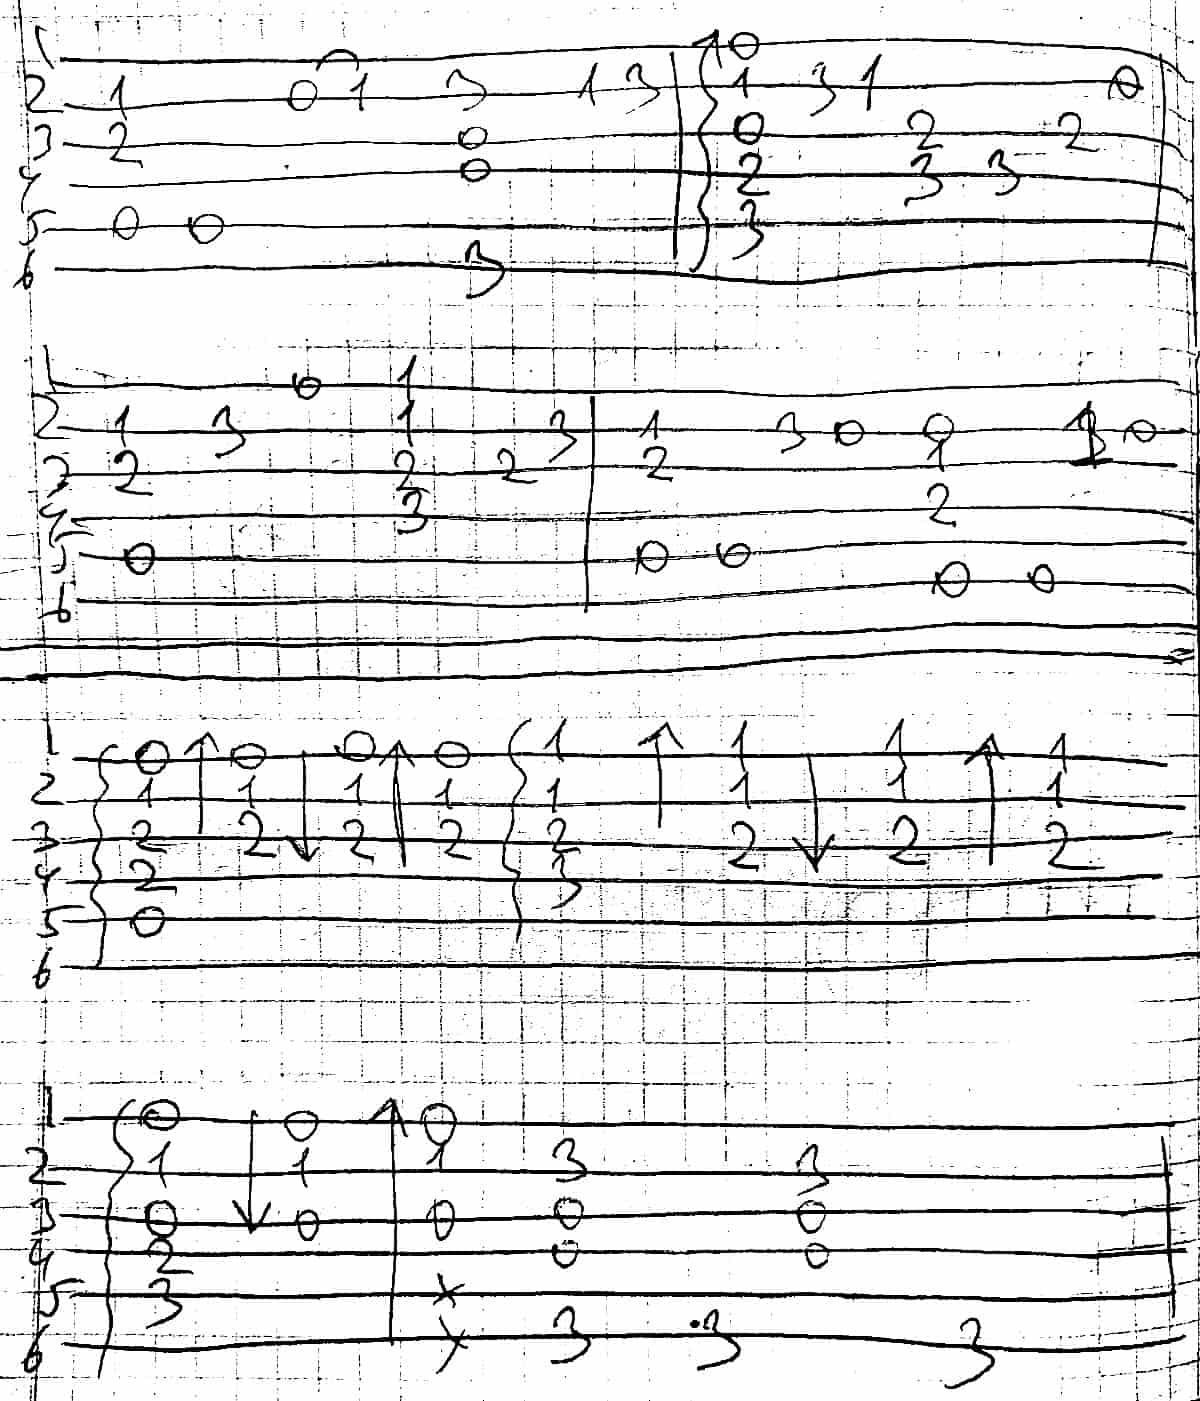 1 0
2 1 0 1 3 1 3 1 3 1 0
3 2 0 0 2 2
4 0 2 3 3
5 0 0 3
6 3
1 0 1
2 1 3 1 3 1 3 0 0 0
3 2 2 2 2 1
4 3 2
5 0 0 0
6 0 0
1 0 0 0 0 1 1 1 1
2 1 1 1 1 1 1 1 1
3 2 2 2 2 2 2 2 2
4 2 3
5 0
6
1 0 0 0
2 1 1 1 3 3
3 0 0 0 0 0
4 2 0 0
5 3 x
6 x 3 3 3